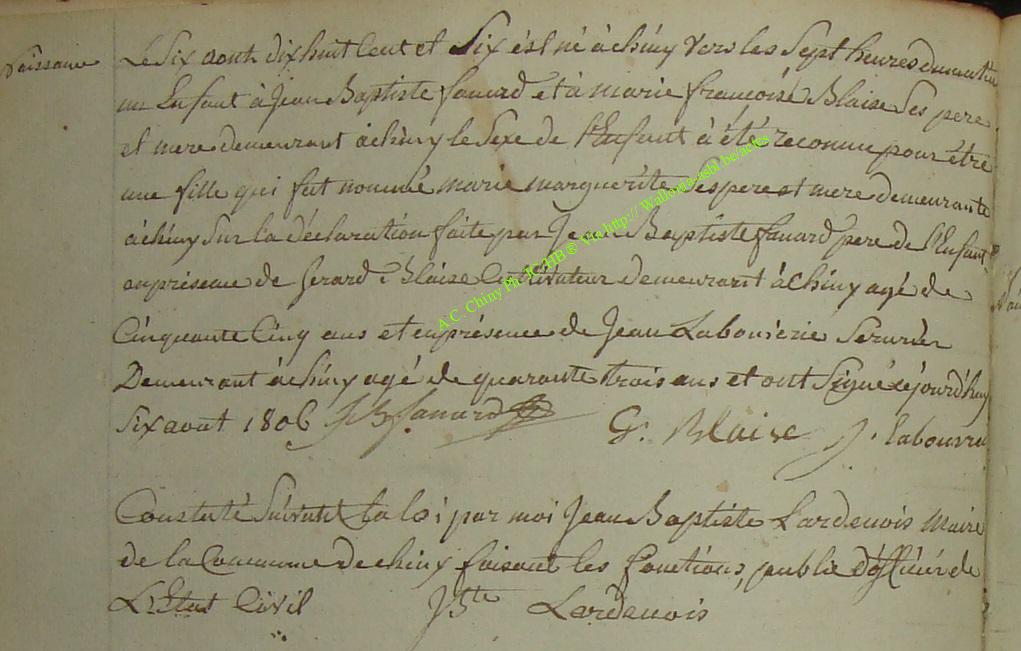 Naissance
Le Six aout dix huit Cent et Six ést né à chiny vers les Sept heures du matin
un Enfant à Jean Baptiste fanard et à marie françoise Blaise Ses pere
et mere demeurant à chiny le Sexe de l'Enfant à été reconnu pour étre
une fille qui fut nommé marie marguerite Ses pere et mere demeurante
à chiny Sur la déclaration faite par Jean Baptiste fanard pere de l'Enfant
en présense de Gerard Blaise Cultivateur demeurant à Chiny agé de
Cinquante Cinq ans et en présence de Jean Labouverie Serurier
Demeurant à chiny agé de quarante trois ans et ont Signé cejourd'huy
Six aout 1806 JB fanard
G. Blaise J. labouvrie
Constaté Suivant la loi par moi Jean Baptiste Lardenois Maire
de la Commune de chiny faisant les fonctions, public d'officier de
L'Etat Civil JBte Lardenois
A.C. Chiny Ph. JC-HB © Via http:// Wallonia-asbl.be/actes